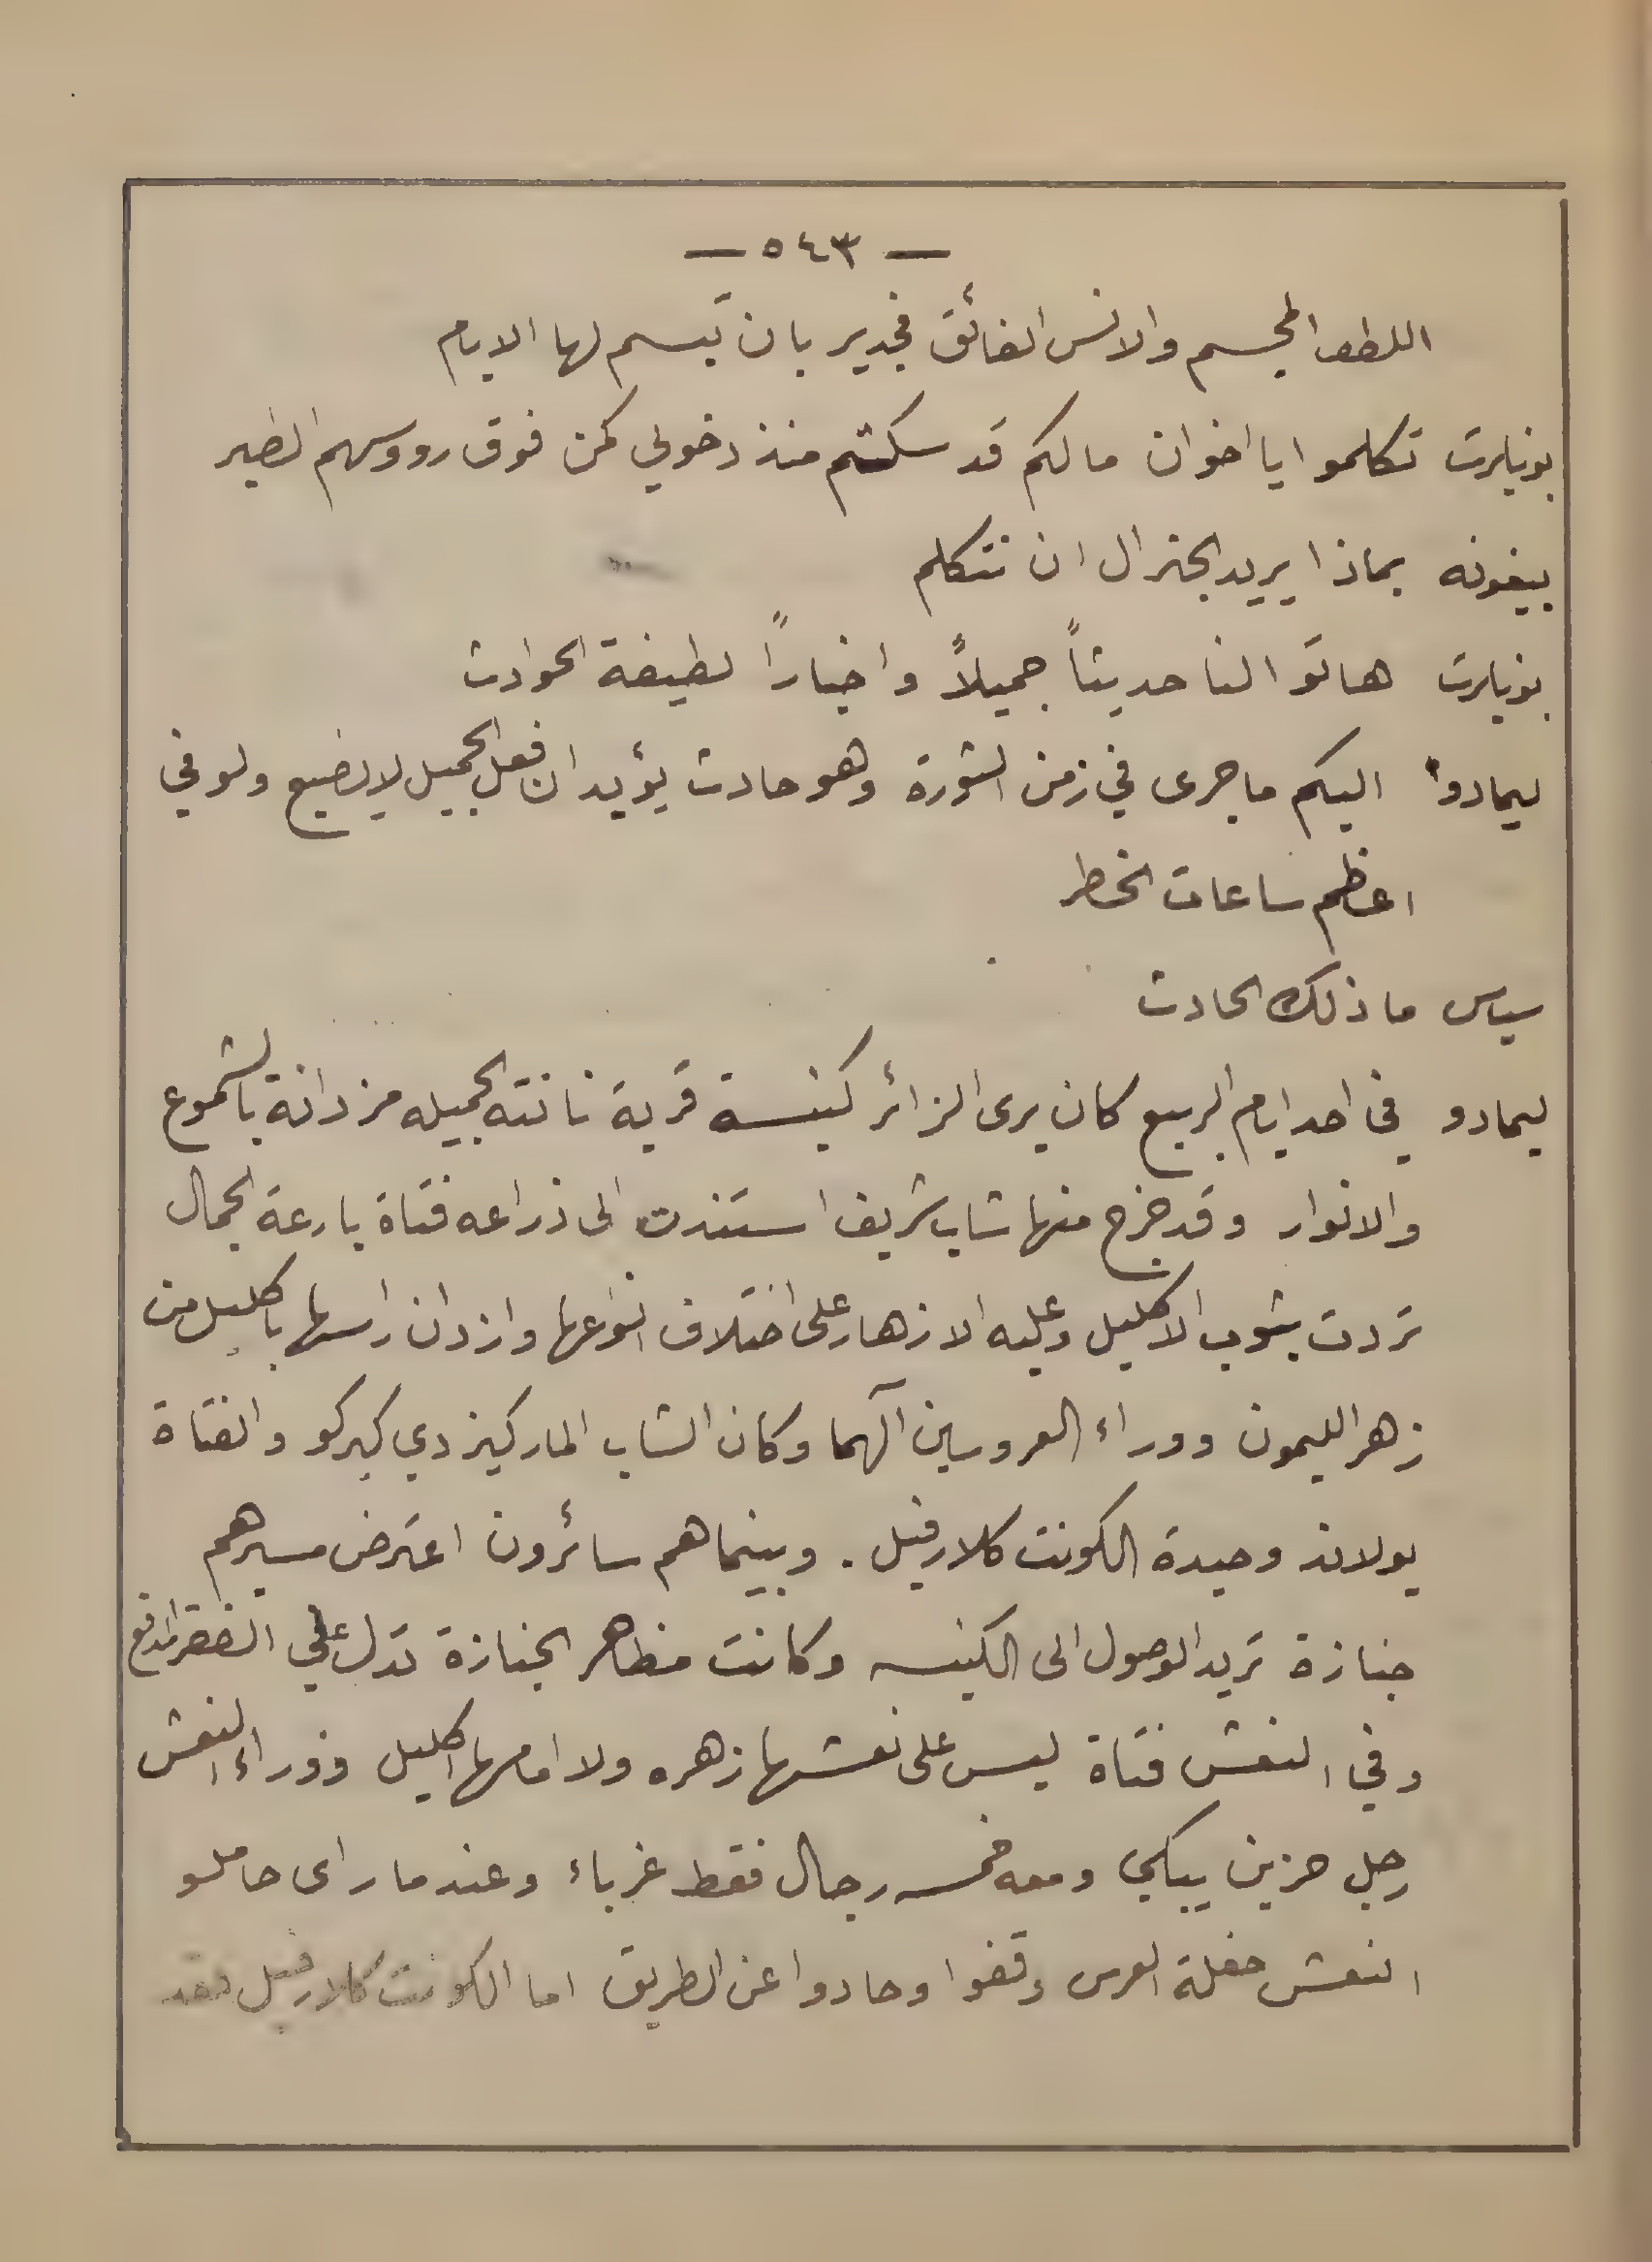 — ٥٤٣ —
اللطف المجسم والانس الفائق فجدير بان تبسم لها الايام
بونابرت تكلموا يا اخوان مالكم قد سكتم منذ دخولي كمن فوق رووسهم الطير
بيغونه بماذا يريد الجنرال ان نتكلم
بونابرت هاتوا لنا حديثاً جميلاً واخباراً لطيفة الحوادث
ليمادو اليكم ما جرى في زمن الثورة وهو حادث يؤيد ان فعل الجميل لا يضيع ولو في
اعظم ساعات الخطر
سياس ما ذلك الحادث
ليمادو في احد ايام الربيع كان يرى الزائر كنيسة قرية نانته الجميله مزدانة بالشموع
والانوار وقد خرج منها شاب شريف استندت الى ذراعه فتاة بارعة الجمال
تردت بثوب الاكليل وعليه الازهار على اختلاف انواعها وازدان راسها باكليل من
زهر الليمون ووراء العروسين آلهما وكان الشاب الماركيز دي كبركو والفتاة
يولاند وحيدة الكونت كلارفيل . وبينما هم سائرون اعترض مسيرهم
جنازة تريد الوصول الى الكنيسه وكانت مظاهر الجنازة تدل على الفقر المدقع
وفي النعش فتاة ليس على نعشها زهره ولا امامها اكليل ووراء النعش
رجل حزين يبكي ومعه خمسه رجال فقط غرباء وعندما راى حاملو
النعش حفلة العرس وقفوا وحادوا عن الطريق اما الكونت كلارفيل فقد